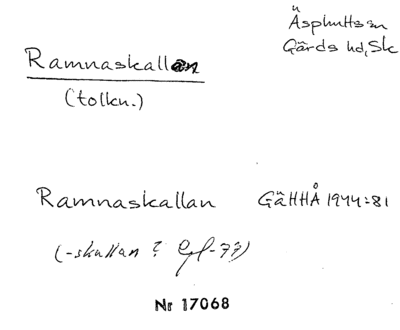 Äsphults sn
Gärds hd, Sk
Ramnaskallan
(tolkn.)
Ramnaskallan GäHHÅ 1944:81
(-skullan ? -77)
Nr 17068